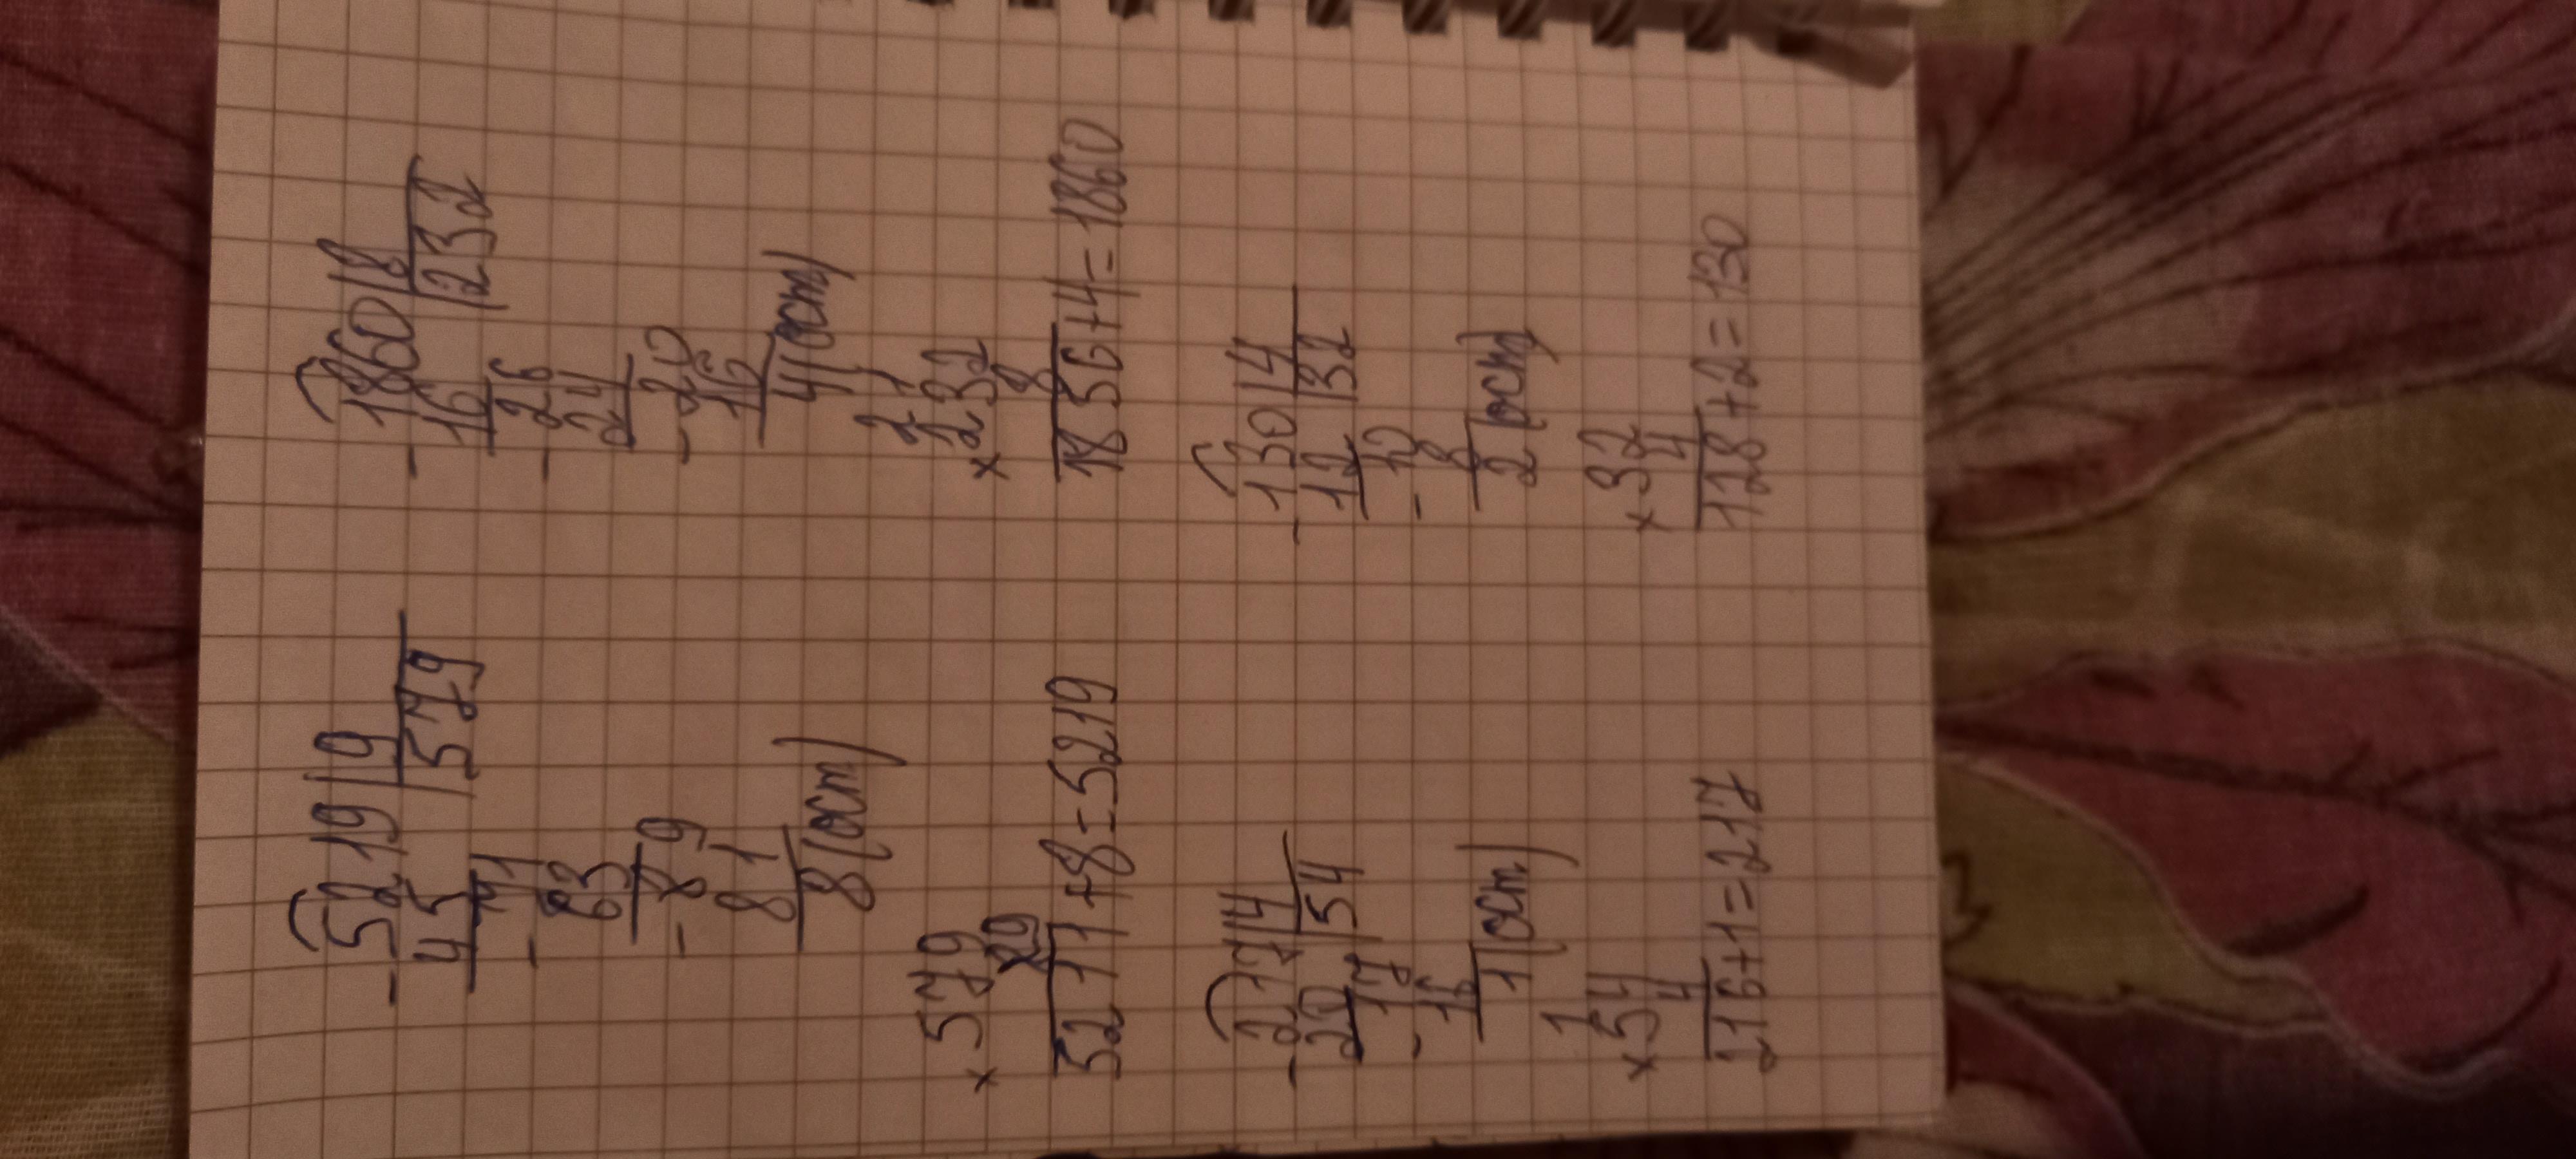 -5219|9
45 |579
-71
63
-89
81
8(ост)
×579
9
5211+8=5219
-1860|8
16 |232
-26
24
-20
16
4(ост)
21
×232
8
1856+4=1860
-217|4
20 |54
-17
16
1(ост)
1
×54
4
216+1=217
-130|4
12 |32
-10
8
2(ост)
×32
4
128+2=130